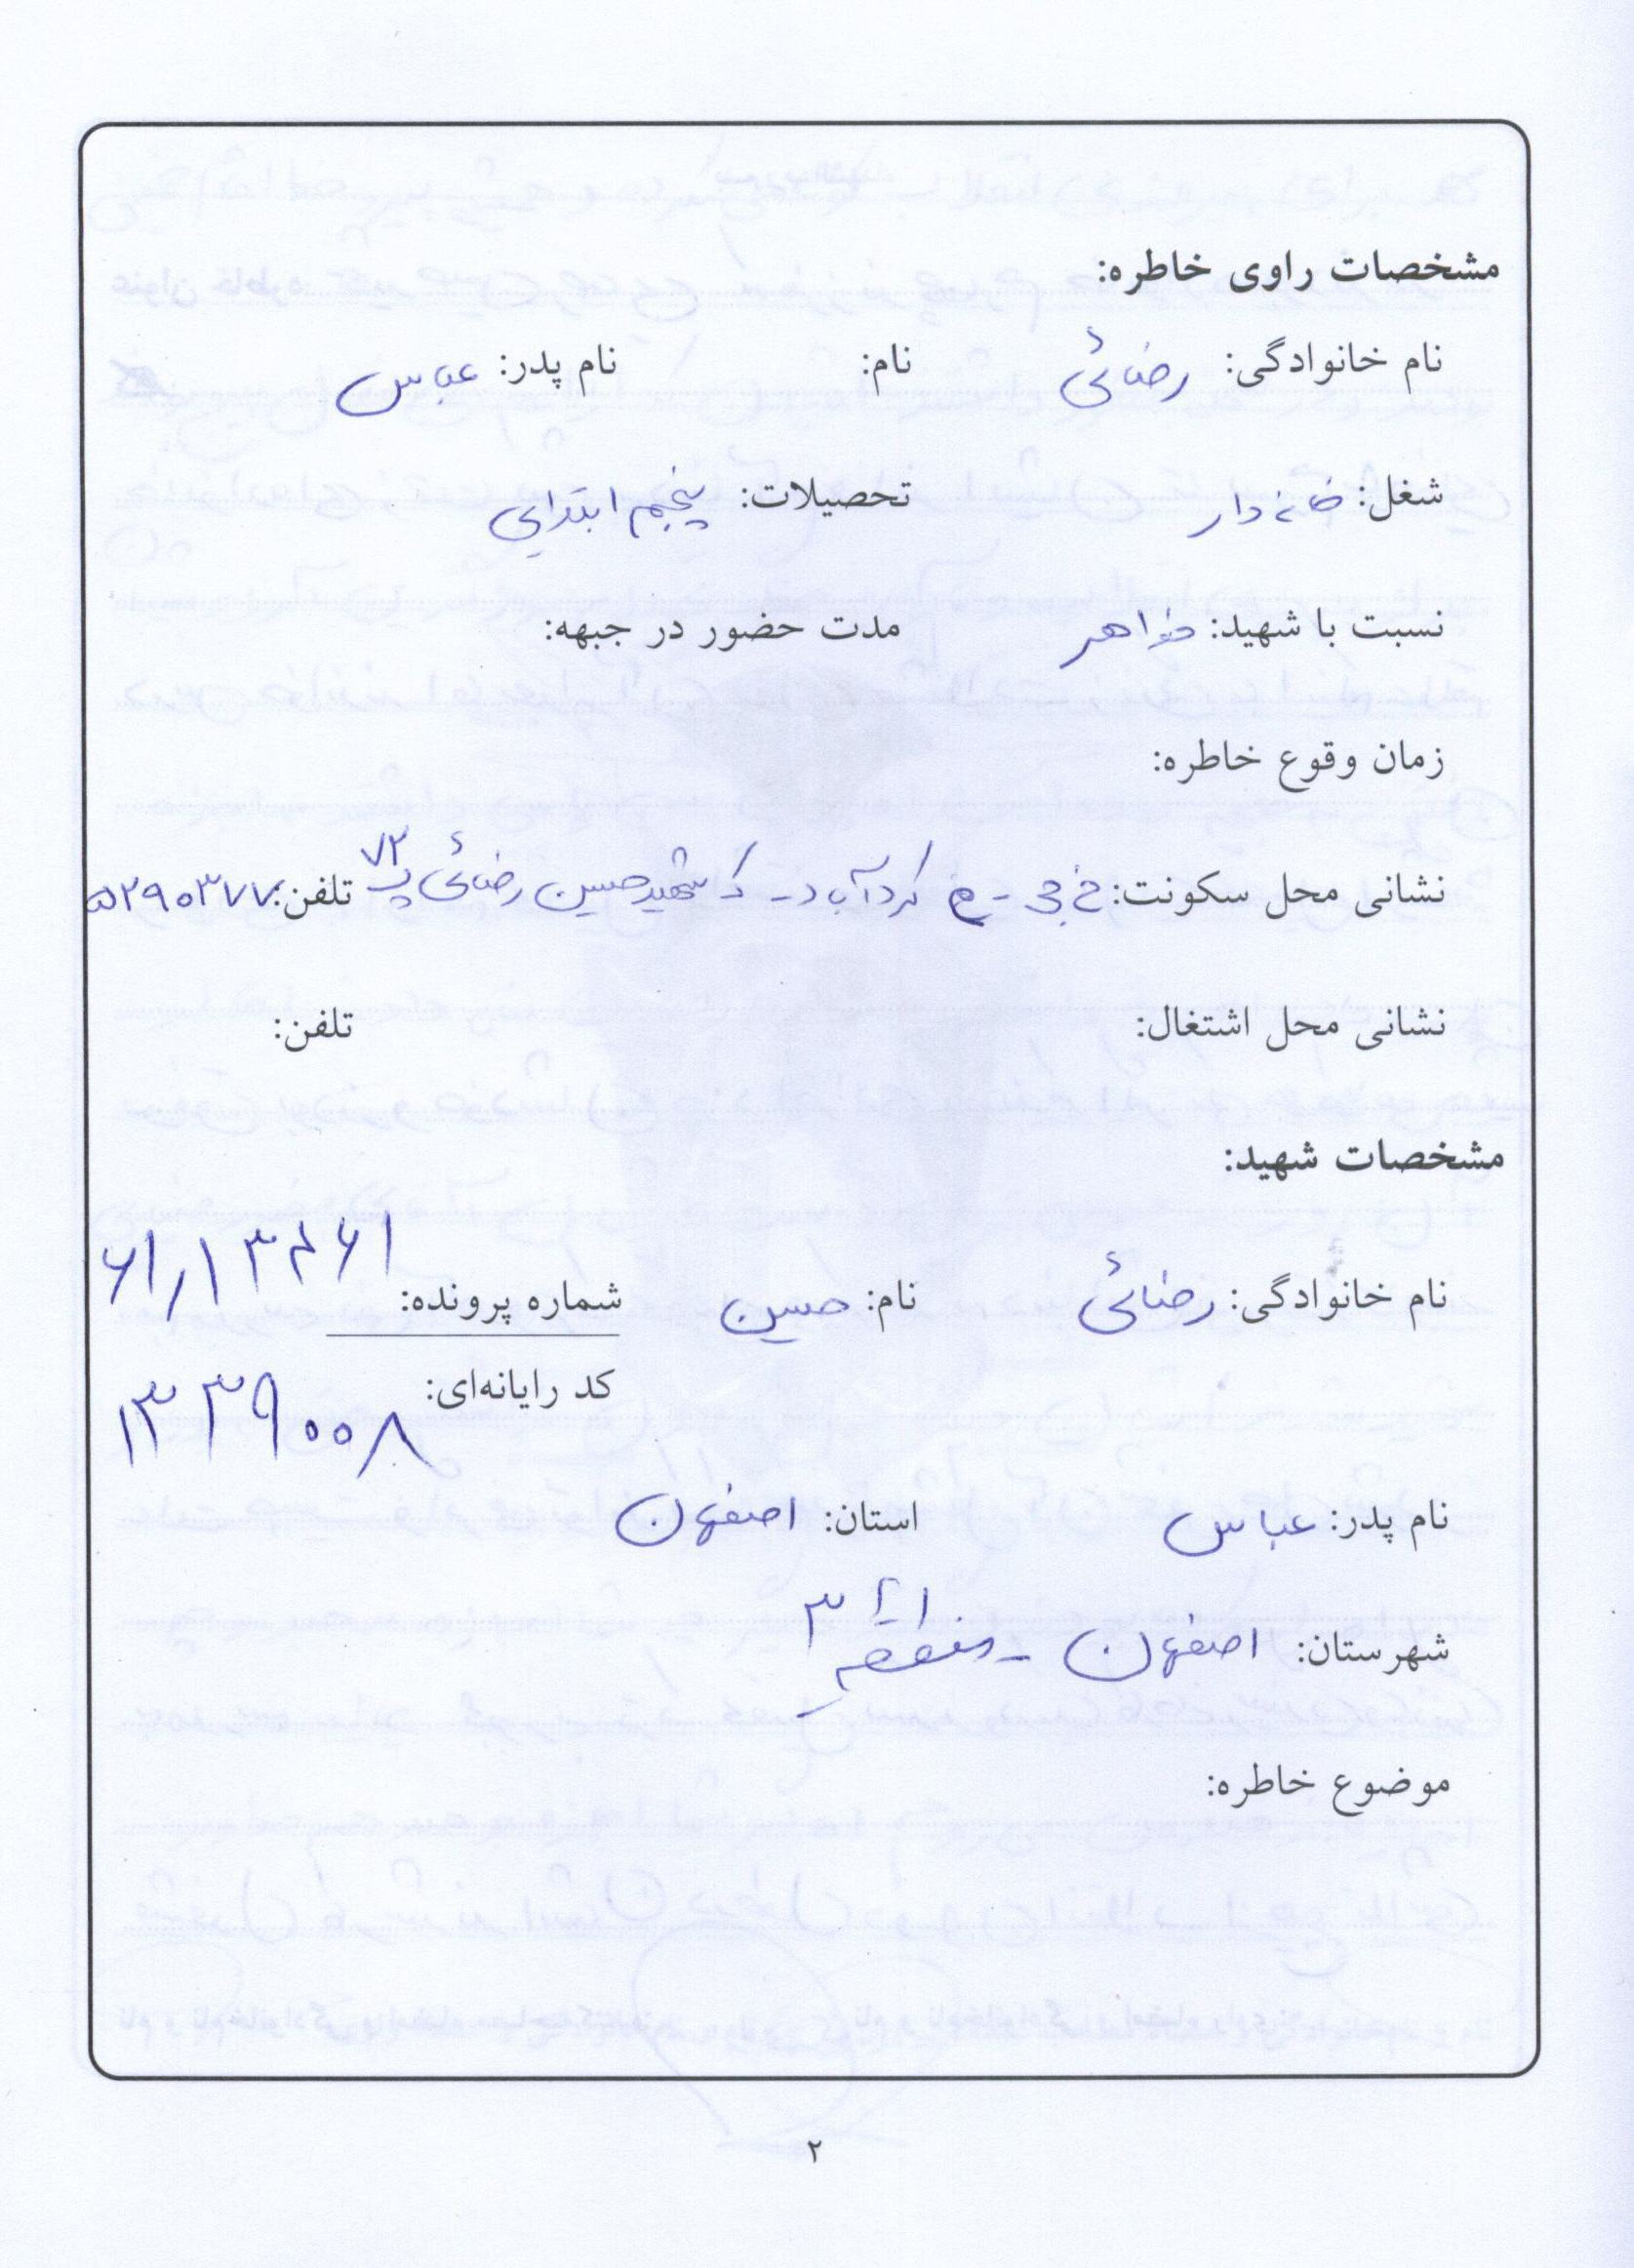 مشخصات راوی خاطره:
نام خانوادگی: رضائی نام: نام پدر: عباس
شغل: خانه دار تحصیلات: پنجم ابتدایی
نسبت با شهید: خواهر مدت حضور در جبهه:
زمان وقوع خاطره:
نشانی محل سکونت: خ جی - خ کردآباد - ک شهید حسین رضائی پ ۷۲ تلفن: ۵۲۹۰۳۷۷
نشانی محل اشتغال: تلفن:
مشخصات شهید:
نام خانوادگی: رضائی نام: حسین شماره پرونده: ۶۱/۱۳۴۶۱
کد رایانه‌ای: ۱۳۳۹۰۰۸
نام پدر: عباس استان: اصفهان
شهرستان: اصفهان - منطقه ۳
موضوع خاطره:
۲